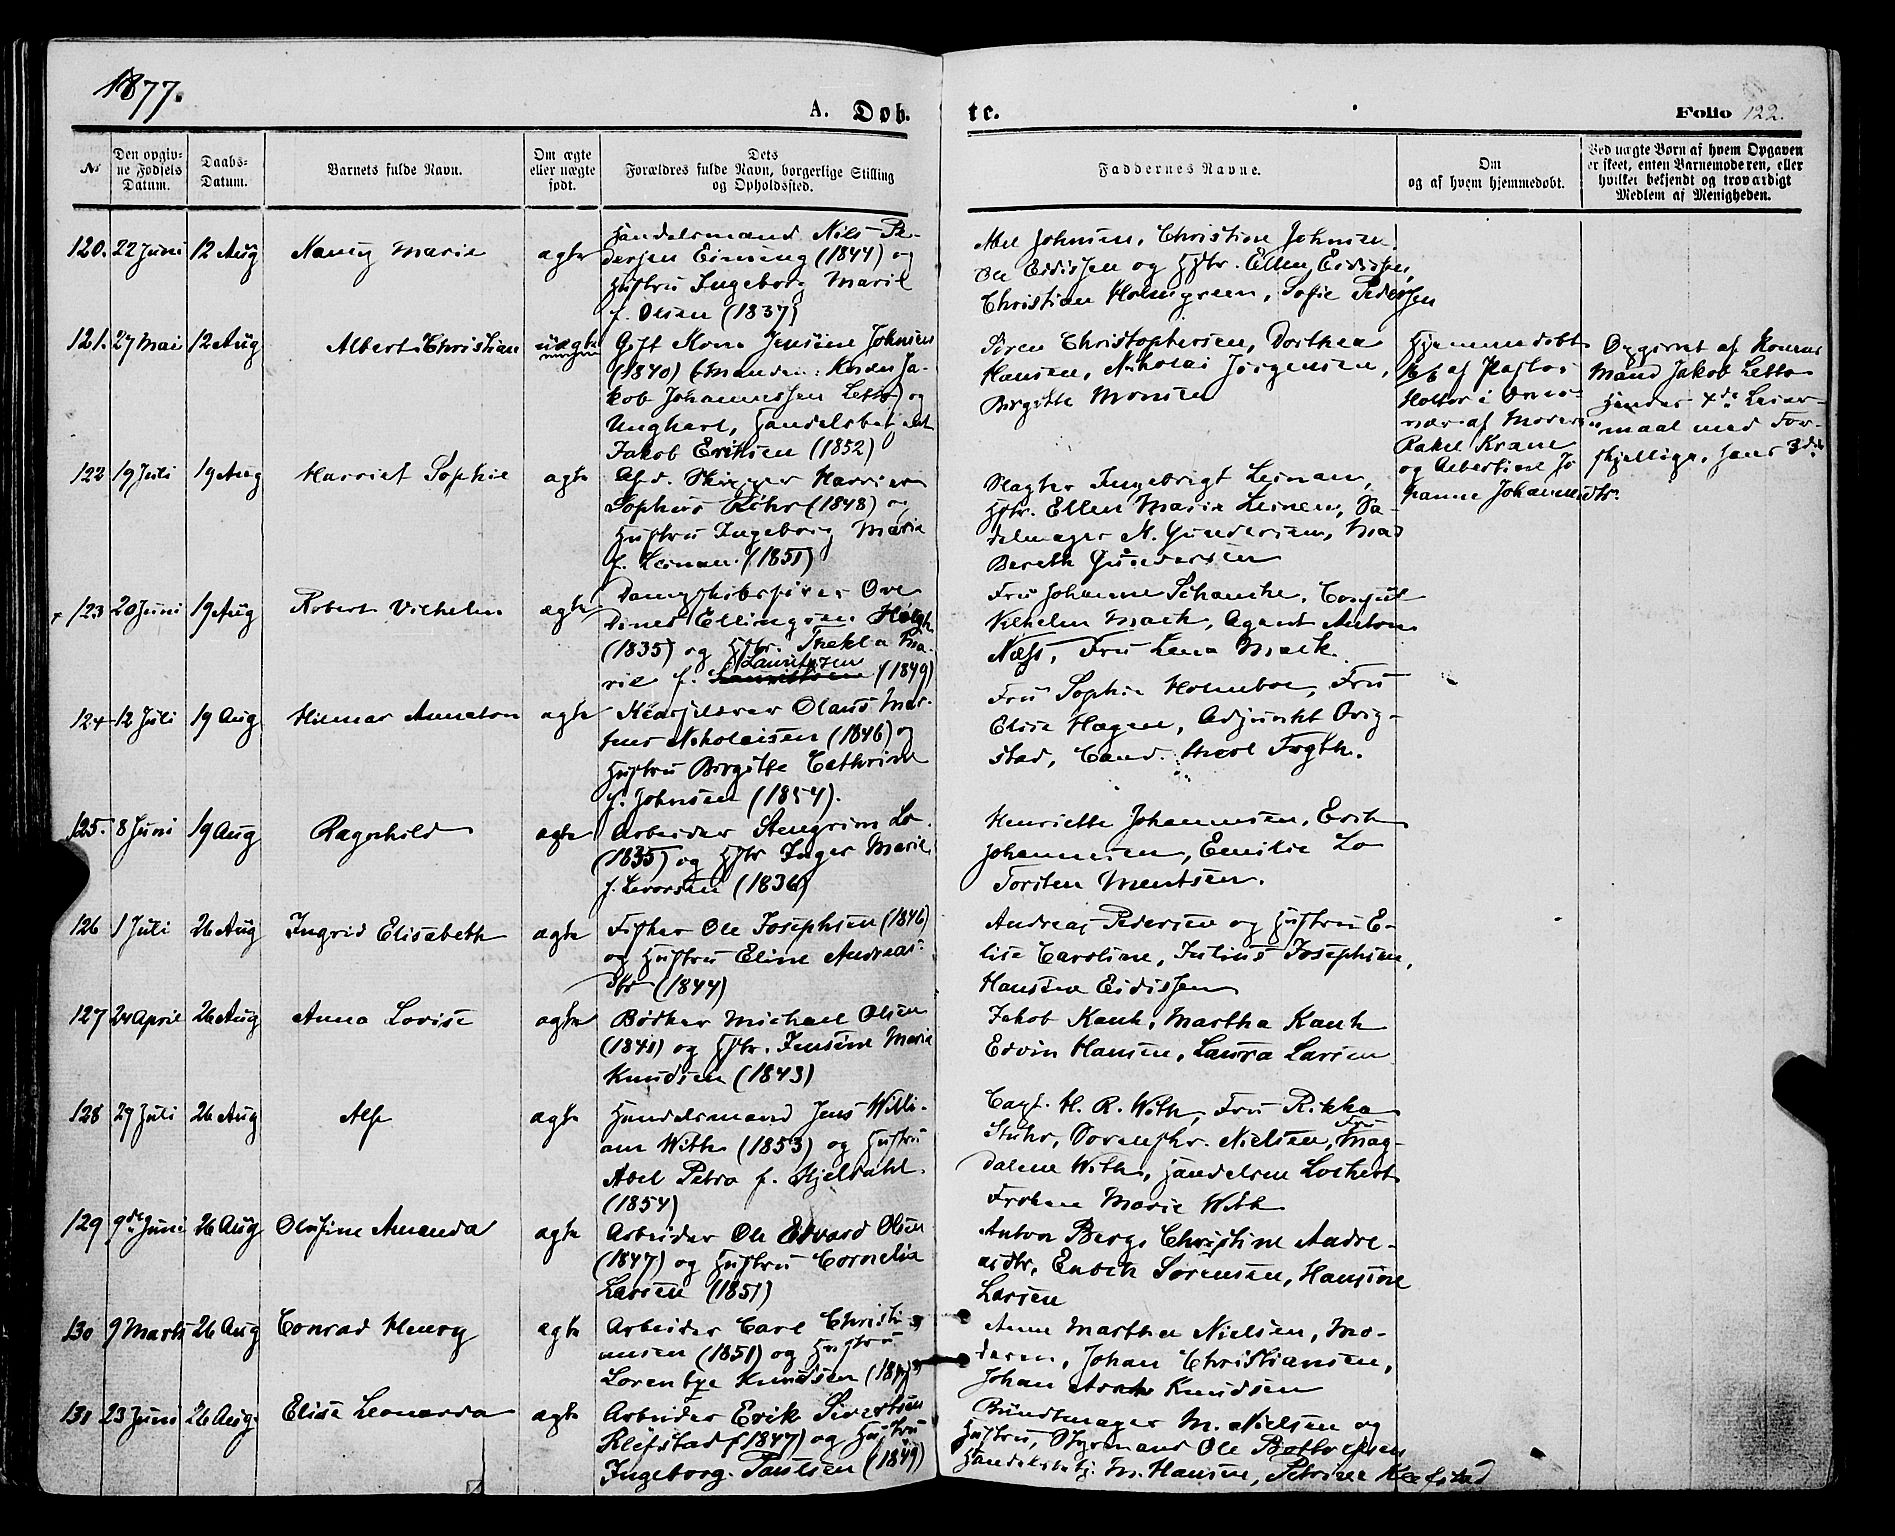 1877.
A. Døb. te. Folio 122.
№
Den opgiv-
ne Fødsels
Datum.
Daabs-
Datum.
Barnets fulde Navn.
Om ægte
eller uægte
født.
Dets
Forældres fulde Navn, borgerlige Stilling
og Opholdssted.
Faddernes Navne.
Om
og af hvem hjemmedøbt.
Ved uægte Børn af hvem Opgaven
er skeet, enten Barnemoderen, eller
hvilket bekjendt og troværdigt
Medlem af Menigheden.
120. 22 Juni 12 Aug Nanny Marie ægte
Handelsmand Nils Pe-
dersen (1844) og
Hustru Ingeborg Marie
f. Olsen (1837)
Johnsen, Christine Johnsen,
Ole Eidissen og Hstr. Ellen Eidissen,
Christian Holmgreen, Sofie Pedersen
121. 27 Mai 12 Aug Albert Christian uægte
Gift Kone Jensine Johnsen
(1840) (Manden: Ja-
kob Johannessen) og
Ungkarl, Handelsbetjent
Jakob Eriksen (1852)
Søren Christophersen, Dorthea
Hansen, Nikolai Jørgensen,
Birgitte Monsen
Hjemmedøbt
af Pastor
i
af
Rakel Krane
og Albertine Jo-
hanne Johannesdtr.
Opgivet af Konens
Mand Jakob
Hendes 4de Leier-
maal med For-
skjellige, hans 3die
122 19 Juli 19 Aug Harriet Sophie ægte
Sophus (1848) og
Hustru Ingeborg Maria
f. Leinan (1851)
Slagter Ingebrigt Leinan,
Hstr. Ellen Maria Leinan, Sa-
delmager N. Gundersen,
Bereth Gundersen
123 20 Juni 19 Aug Robert Vilhelm ægte
Dampskibsfører Ove
Ellingsen
(1835) og Hstr. Thekla Ma-
rie f. Lauritzen (1849)
Fru Johanne Schanche, Consul
Vilhelm Mack, Agent Anton
Næss, Fru Lena Mack.
124 12 Juli 19 Aug Hilmar ægte
Olaus Mar-
Nikolaisen (1846) og
Hustru Birgitte Cathrine
f. Johnsen (1854).
Fru Sophie Holmboe, Fru
Elise Hagen, Adjunkt Qvig-
stad, Cand. theol Fogth.
125. 8 Juni 19 Aug Ragnhild ægte
Arbeider Stengrim Lo
(1835) og Hstr Inger Marie
f. Levorsen (1836)
Henriette Johannesen, Erik
Johannesen, Emilie Lo
Torsten Mentsen.
126 1 Juli 26 Aug Ingrid Elisabeth ægte
Fisker Ole Josephsen (1846)
og Hustru Eline Andreas-
dtr (1844)
Andreas Pedersen og Hustru E-
lise Caroline, Julius Josephsen,
Hansine Eidissen
127 24 April 26 Aug Anna Lovise ægte
Bødker Michael Olsen
(1841) og Hstr. Jensine Marie
Knudsen (1843)
Jakob Kank, Martha Kank
Edvin Hansen, Laura Larsen
128 29 Juli 26 Aug Alf ægte
Handelsmand Jens Willi-
am With (1853) og Hustru
Abel Petra f. Kjeldahl
(1854)
Capt. H. R. With, Fru Rikka
Stuhr, Nielsen, Fru Mag-
dalene With, Lockert
Frøken Marie With
129 9de Juni 26 Aug Olufine Amanda ægte
Arbeider Ole Edvard Olsen
(1847) og Hustru Cornelia
Larsen (1851)
Anton Berg, Christine Andre-
asdtr, Enoch Sørensen, Hansine
Larsen
130 9 Marts 26 Aug Conrad Henry ægte
Arbeider Carl Christi-
ansen (1851) og Hustru
Knudsen
Anne Martha Nielsen, Mo-
deren, Johan Christiansen,
Johan Knudsen
131 23 Juni 26 Aug. Elise Leonarda ægte
Arbeider Erik Sivertsen
Kløfstad (1847) og Hustru
Ingeborg Paulsen (1849)
Bundtmager M. Nielsen og
Hustru, Styrmand Ole
M. Hansen, Petrine Kløfstad